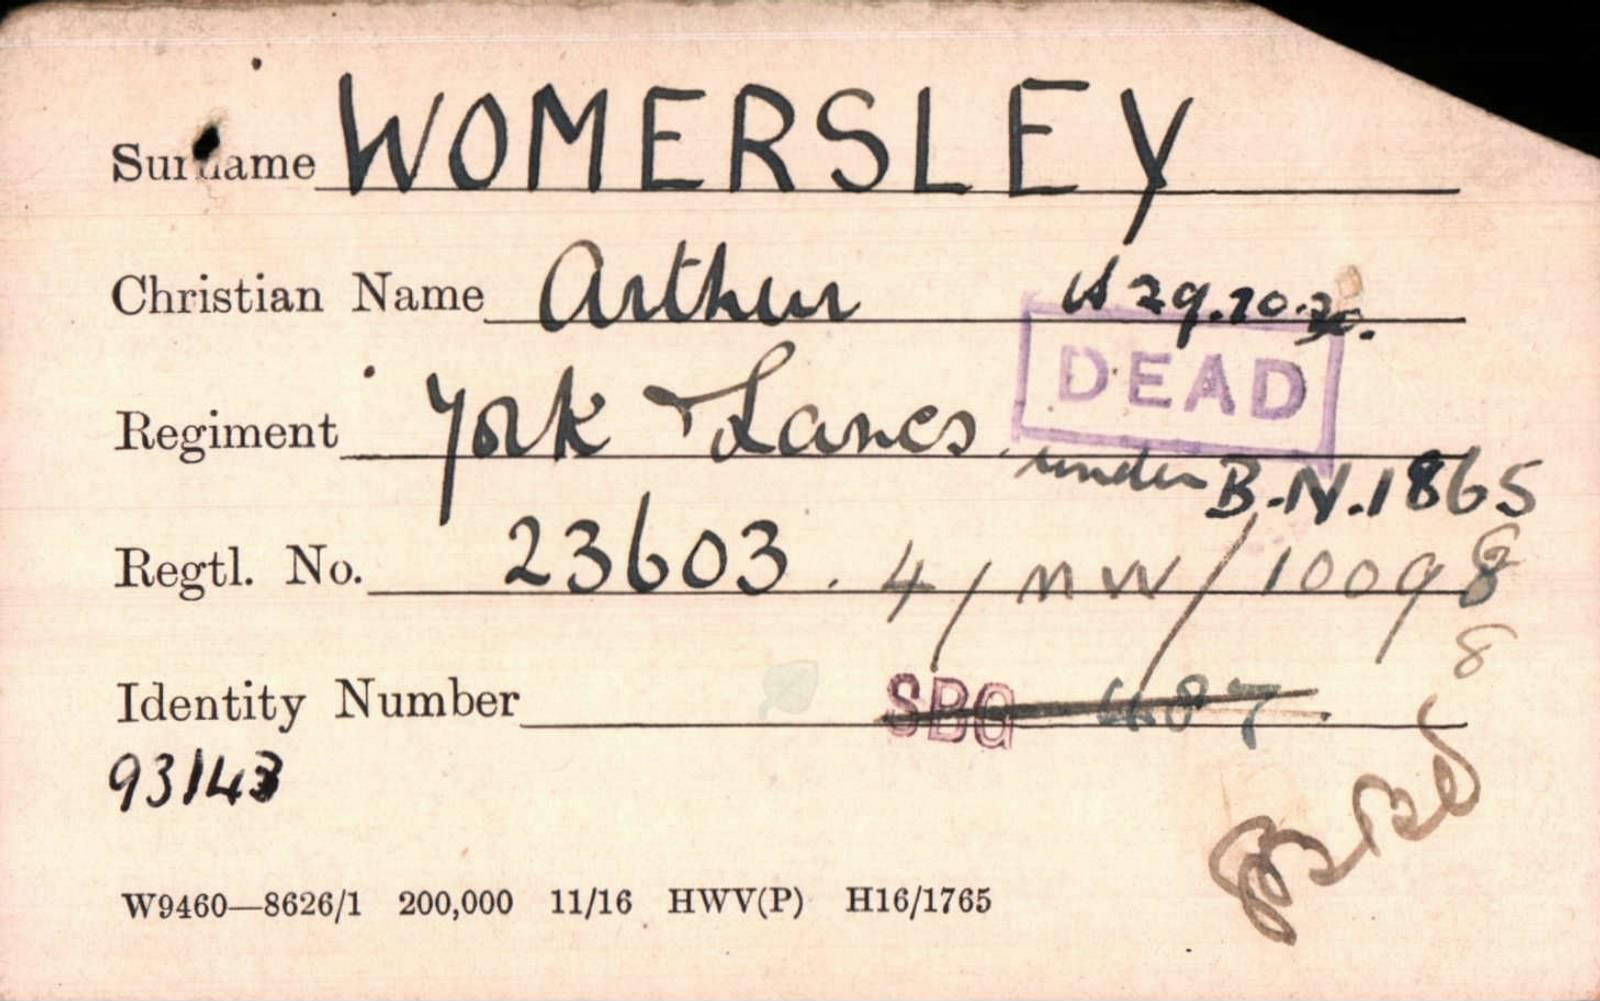 Surname WOMERSLEY
Christian Name Arthur
29.10.30.
DEAD
Regiment York & Lancs
under B.N.1865
Regtl. No. 23603. 4/MW/10098
8
Identity Number SBG
93143
W9460—8626/1 200,000 11/16 HWV(P) H16/1765